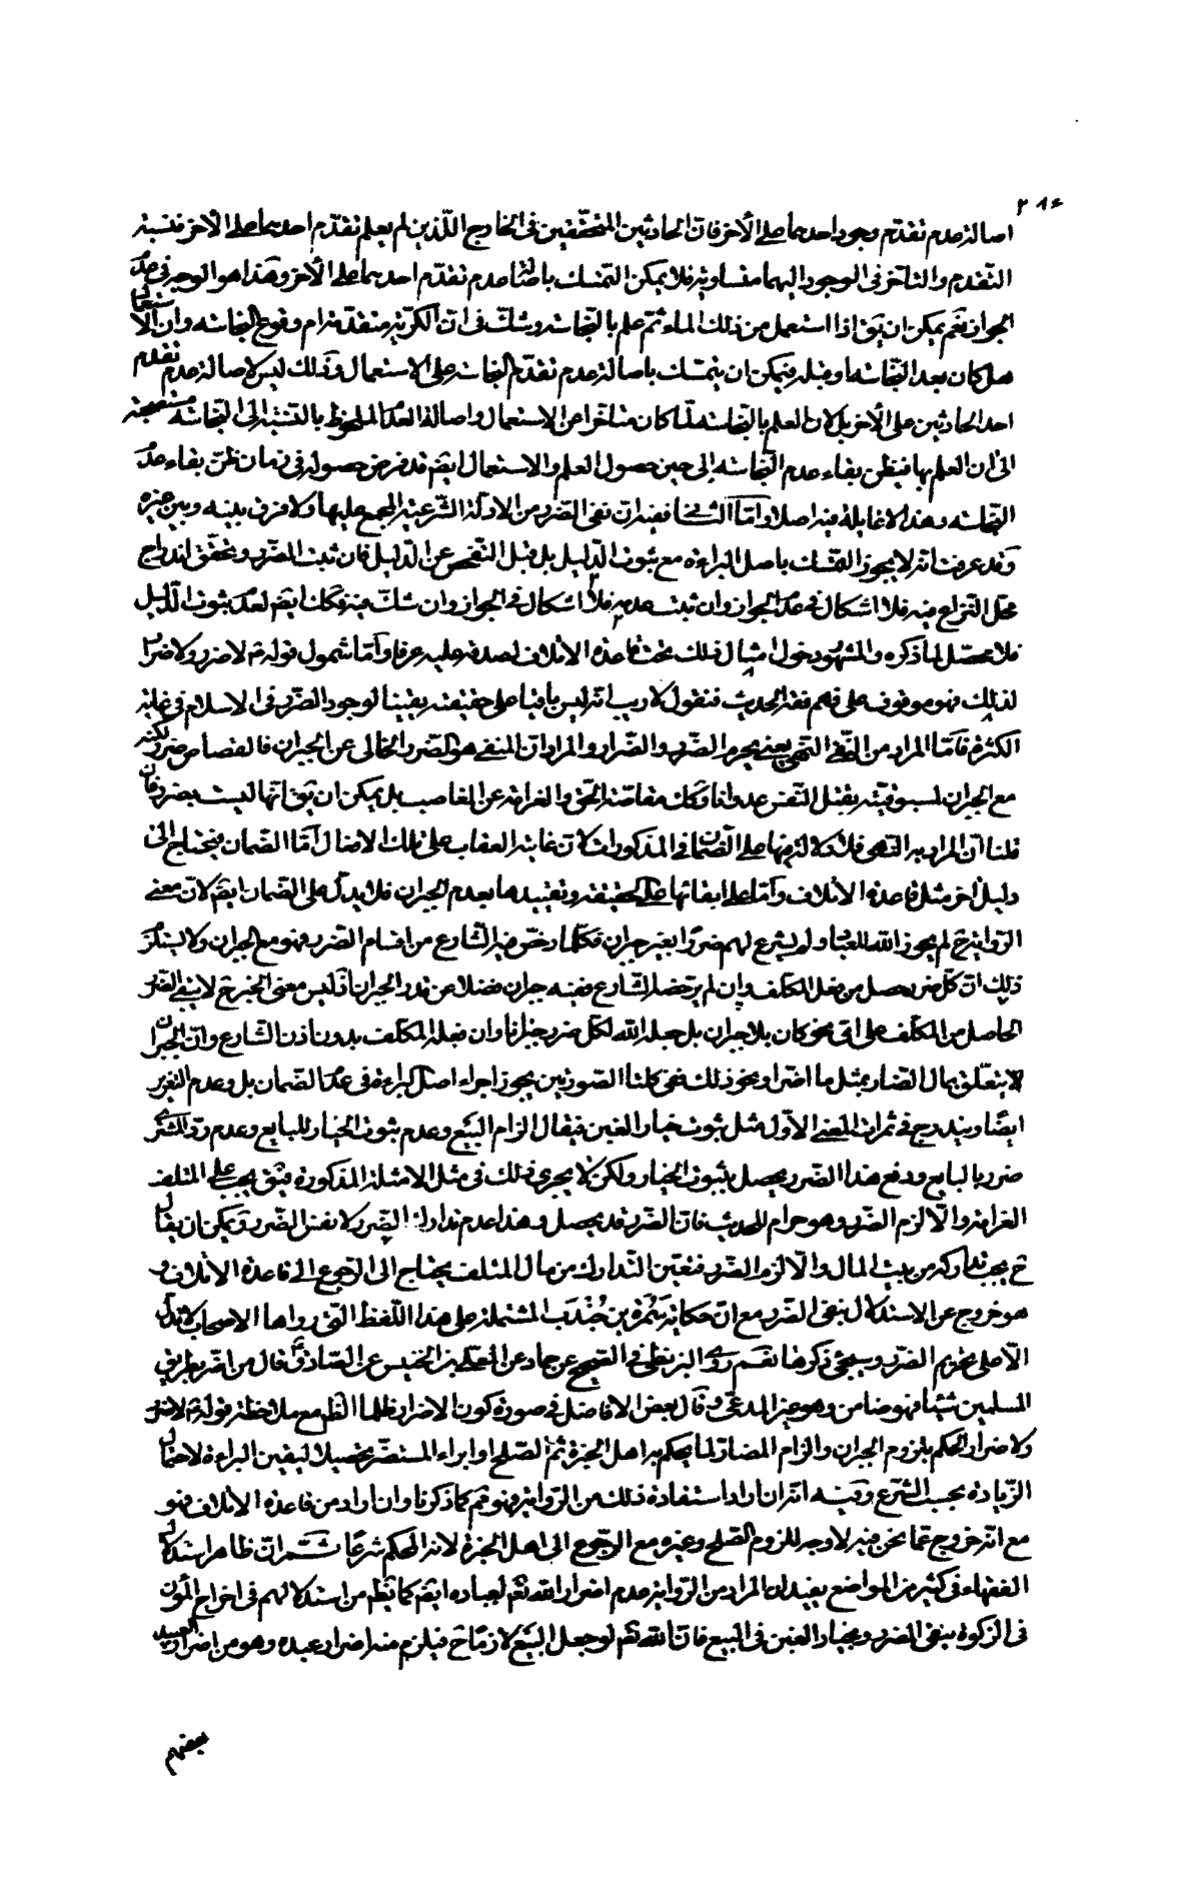 ٢٨٤
اصالة عدم تقدّم وجود احدهما على الأخر فانّ الحادثين المتحقّقين فى الخارج اللّذين لم يعلم تقدّم احدهما على الأخر فنسبة
التّقدم والتأخر فى الوجود اليهما متساوية فلا يمكن التمسّك باصالة عدم تقدّم احدهما على الأخر وهذا هو الوجه فى عدم
الجواز نعم يمكن ان يق اذا استعمل من ذلك الماء ثم علم بالنّجاسة وشكّ فى انّ الكرية متقدمة ام وقوع النجاسة وان الاستعمال
هل كان بعد النّجاسة او قبله فيمكن ان يتمسّك باصالة عدم تقدّم النجاسة على الاستعمال وذلك ليس لاصالة عدم تقدم
احد الحادثين على الأخر بل لان العلم بالنجاسة لمّا كان متاخرا عن الاستعمال واصالة العدم الملحوظ بالنسبة الى النجاسة مستصحبة
الى ان العلم بها فيظن بقاء عدم النّجاسة الى حين حصول العلم والاستعمال ايضم قد فرض حصوله فى زمان ظنّ بقاء عدم
النّجاسة وهذا لا غايلة فيه اصلا وامّا الثّانى ففيه ان نفى الضّرر من الادلّة الشّرعية المجمع عليها ولا فرق بينه وبين غيره
وقد عرفت انه لا يجوز التمسّك باصل البراءة مع ثبوت الدّليل بل قبل التفحص عن الدّليل فان ثبت الضّرر وتحقّق اندراج
محل النزاع فيه فلا اشكال فى عدم الجواز وان ثبت عدمه فلا اشكال فى الجواز وان شكّ فيه فكك ايضم لعدم ثبوت الدّليل
فلا محصّل لما ذكره والمشهور دخول امثال ذلك تحت قاعدة الاتلاف لصدقه عليه عرفا وامّا شمول قوله ع لا ضرر ولا ضرار
لذلك فهو موقوف على فهم فقه الحديث فنقول لا ريب انه ليس باقيا على حقيقته يقينا لوجود الضّرر فى الاسلام فى غاية
الكثرة فامّا المراد من النّفى النّهى يعنى يحرم الضّرر والضّرار والمراد انّ المنفى هو الضّرر الخالى عن الجبران فالقصاص ضرر لكنه
مع الجبران لمسبوقيته بقتل النّفس عدوانا وكك مقاصّة الحقّ والغرامة عن الغاصب بل يمكن ان يق انّها ليست بضرر فان
قلنا انّ المراد به النّهى فلا دلالة فيها على الضّمان فى المذكورات لانّ غاية العقاب على تلك الافعال امّا الضّمان فيحتاج الى
دليل اخر مثل قاعدة الاتلاف وامّا على ابقائها على الحقيقة وتقييدها بعدم الجبران فلا يدلّ على الضّمان ايضم لانّ معنى
الرّواية ح لم يجوز الله للعباد ولم يشرع لهم ضررا بغير جبران فكلّما رخّص فيه الشّارع من اقسام الضّرر فهو مع الجبران ولا يستلزم
ذلك انّ كل ضرر يحصل من فعل المكلّف وان لم يرتضه الشّارع ففيه جبران فضلا عن قدر الجبران اذ ليس معنى الخبر ح لا ينفى الضّرر
الحاصل من المكلّف على اىّ نحو كان بلا جبران بل جعل الله لكل ضرر جبرانا وان فعله المكلّف بدون اذن الشّارع وانّ الجبران
لا يتعلّق بمال الضّار بمثل ما اضرّ او نحو ذلك ففى كلتا الصّورتين يجوز اجراء اصل البراءة فى عدم الضّمان بل وعدم التعزير
ايضا ويندرج فى ثمرات المعنى الأوّل مثل ثبوت خيار الغبن فيقال الزام البيع وعدم ثبوت الخيار للبايع وعدم ردّ المشترى
ضرر بالبايع ودفع هذا الضّرر يحصل بثبوت الخيار ولكن لا يجرى ذلك فى مثل الامثلة المذكورة فيق يجب على المتلف
الغرامة والّا لزم الضّرر وهو حرام للحديث فانّ الضّرر قد يحصل وهذا عدم تدارك الضّرر لا نفس الضّرر ويمكن ان يقال
ح يجب تداركه من بيت المال والّا لزم الضّرر فتعيّن التّدارك من مال المتلف يحتاج الى الرّجوع الى قاعدة الاتلاف و
هو خروج عن الاستدلال بنفى الضّرر مع انّ حكاية سَمُرَة بن جُنْدَب المشتملة على هذا اللّفظ التى رواها الاصحاب لا تدلّ
الّا على تحريم الضّرر وسيجئ ذكرها نعم روى البزنطى فى الصّحيح عن حماد عن المعلى بن الخنيس عن الصّادق ع قال من اضر بطريق
المسلمين شيئا فهو ضامن وهو غير المدّعى وقال بعض الافاضل فى صورة كون الاضرار ظلما الظّم مع ملاحظة قوله ع لا ضرر
ولا ضرار الحكم بلزوم الجبران والزام المضارّ لما يحكم به اهل الخبرة ثمّ الصّلح او ابراء المستضرّ تحصيلا ليقين البراءة لاحتمال
الزّيادة بحسب الشّرع وفيه انّه ان اراد استفادة ذلك من الرّواية فهو ثم كما ذكرنا وان اراد من قاعدة الاتلاف فهو
مع انه خروج عمّا نحن فيه لا وجه للزوم الصّلح وغيره مع الرّجوع الى اهل الخبرة لانه الحكم شرعًا ثم انّ ظاهر استدلال
الفقهاء فى كثير من المواضع يفيد ان المراد من الرّواية عدم اضرار الله تعم لعباده ايضم كما يظم من استدلالهم فى اخراج المؤن
فى الزكوة بنفى الضرر وبخيار الغبن فى البيع فانّ الله تعم لو جعل البيع لازما ح فيلزم منه اضرار عبده وهو من اضرار العبيد
بعضهم